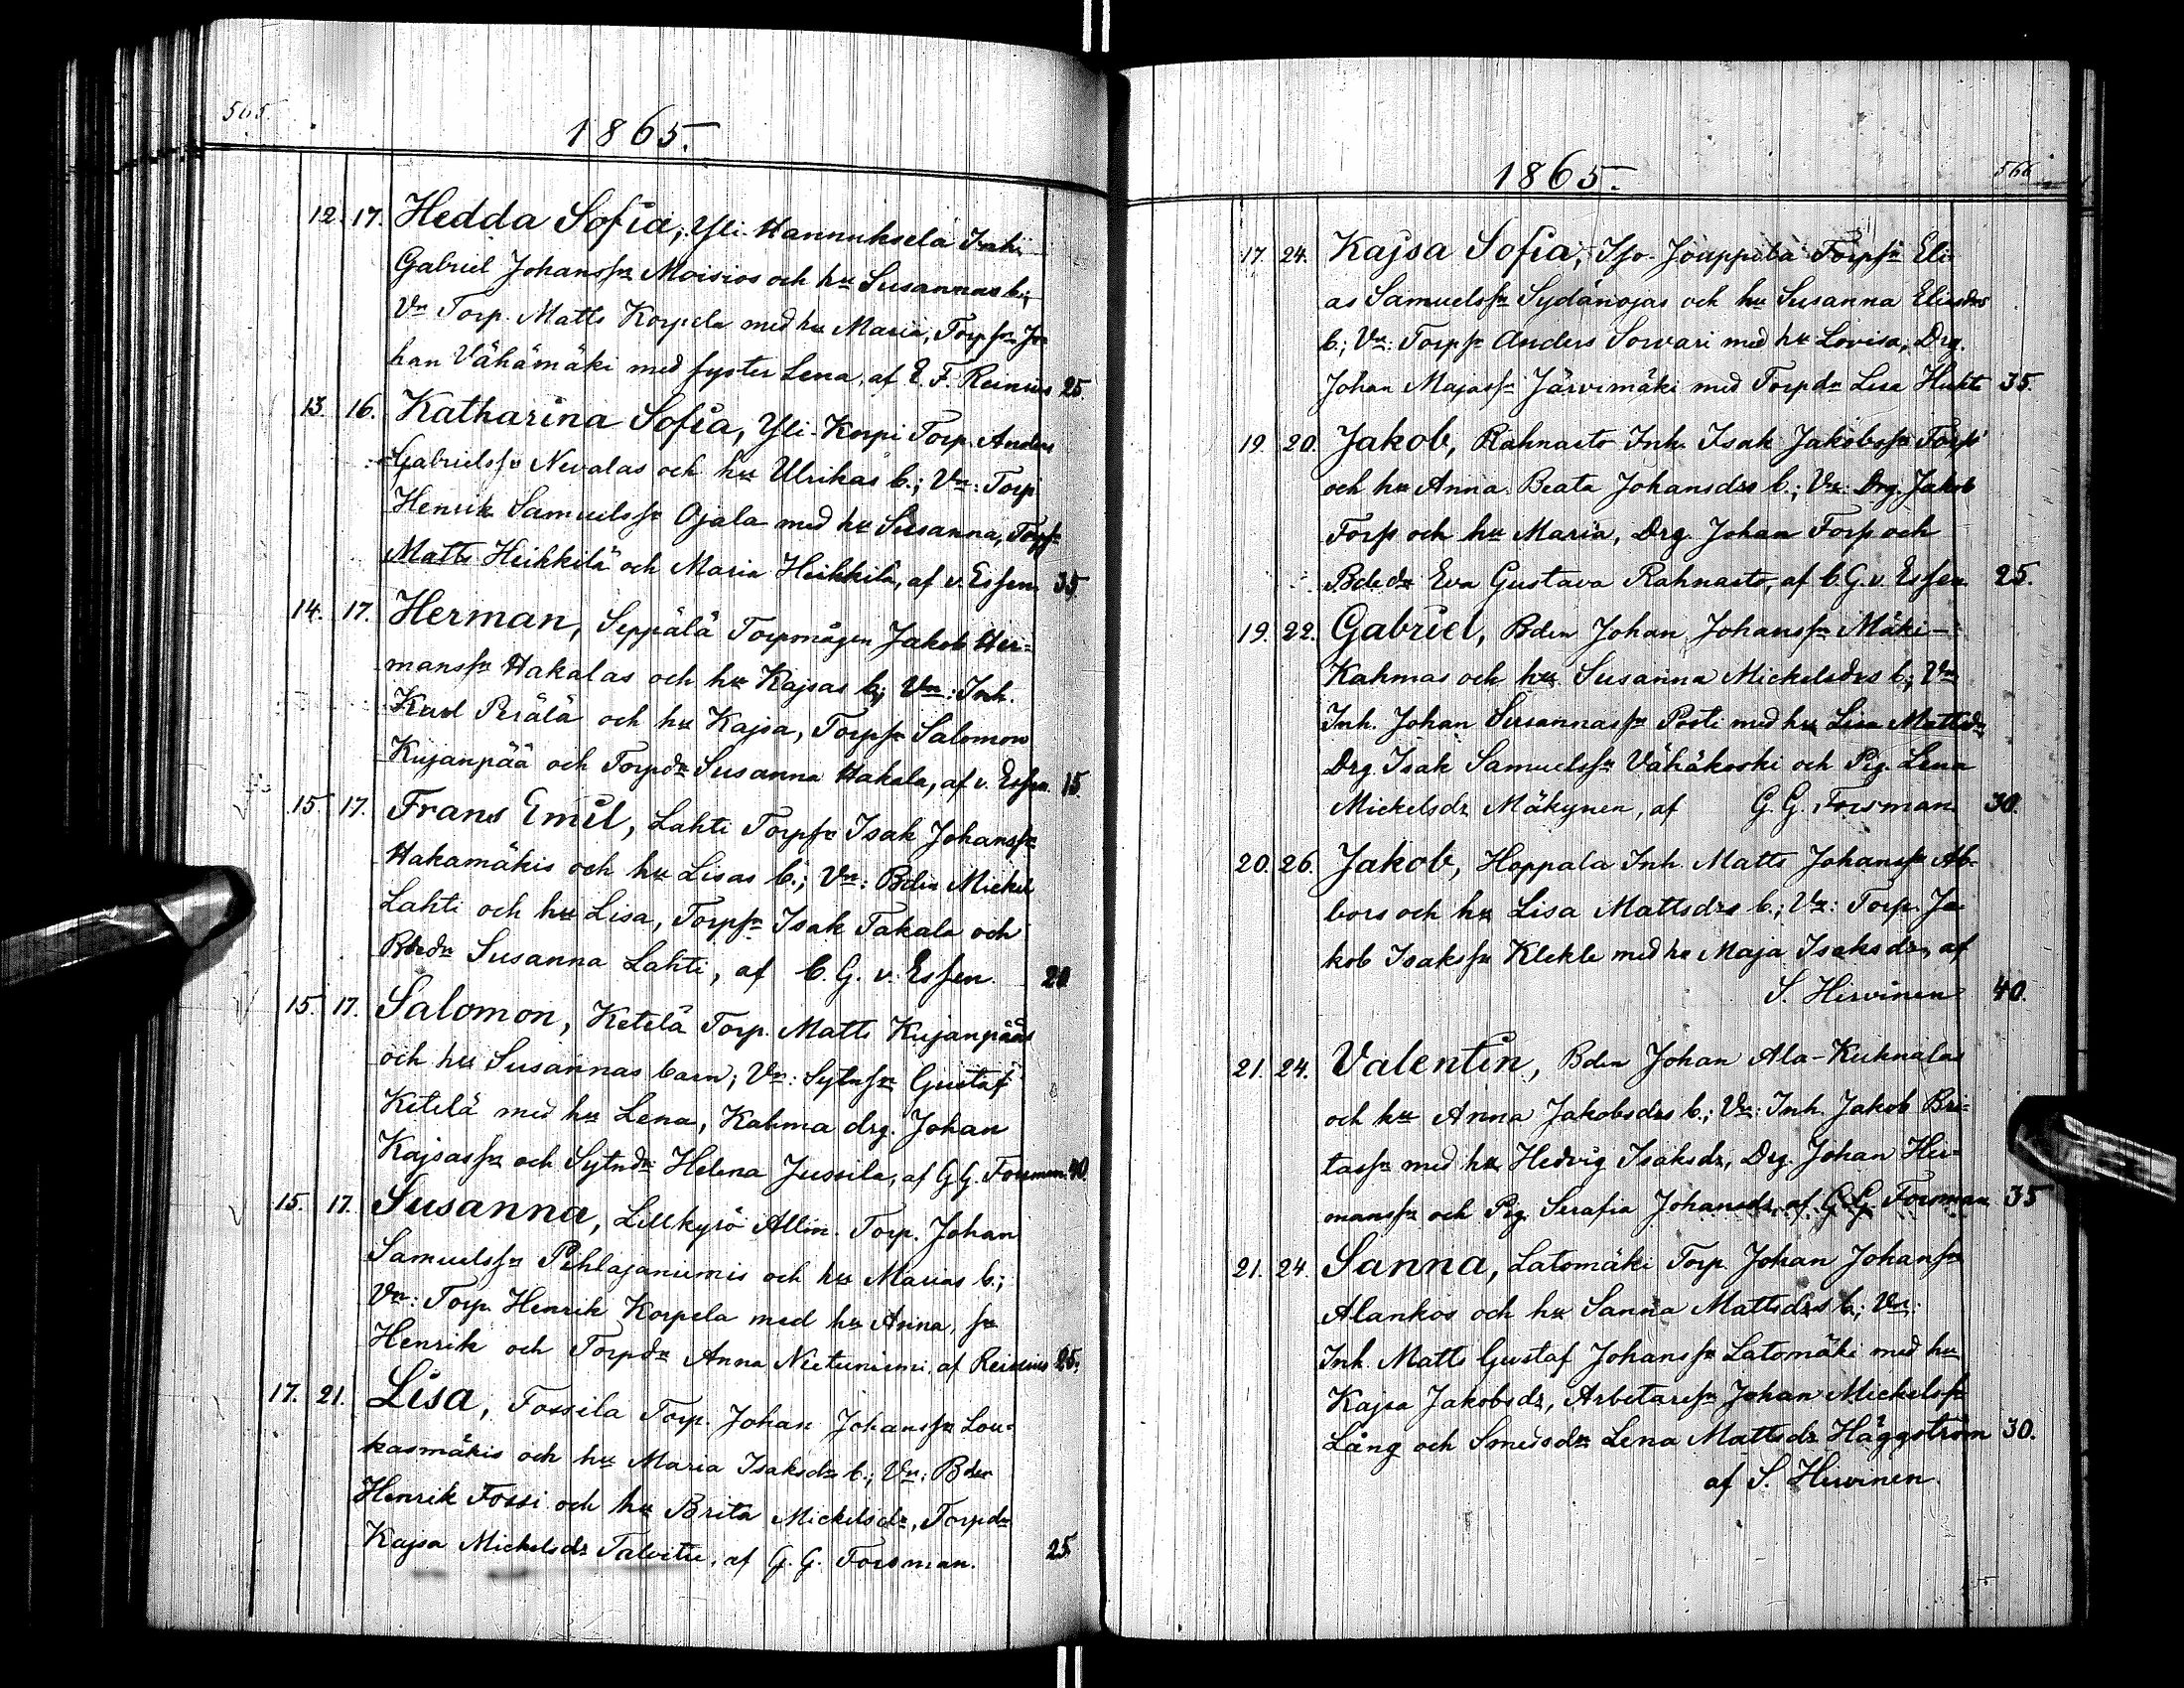 565.
1865.
12. 17. Hedda Sofia, Yli-Hannuksela Inh.
Gabriel Johanssn Moisios och hu Susannas b.;
Vn Torp. Matts Korpela med hu Maria, Torpsn Jo-
han Vähämäki med syster Lena, af E. F. Reinius 25.
13. 16. Katharina Sofia, Yli-Korpi Torp. Anders
Gabrielssn Nevalas och hu Ulrikas b.; Vn: Torp
Henrik Samuelssn Ojala med hu Susanna, Torpsn
Matts Heikkilä och Maria Heikkilä, af v. Essen 35.
14. 17. Herman, Seppälä Torpmågen Jakob Her-
manssn Hakalas och hu Kajsas b; Vn: Inh.
Karl Perälä och hu Kajsa, Torpsn Salomon
Kujanpää och Torpdn Susanna Hakala, af v. Essen. 15.
15. 17. Frans Emil, Lahti Torpsn Isak Johanssn
Hakamäkis och hu Lisas b.; Vn: Bden Mickel
Lahti och hu Lisa, Torpsn Isak Takala och
Bdedn Susanna Lahti, af C. G. v. Essen. 20
15. 17. Salomon, Ketelä Torp. Matts Kujanpääs
och hu Susannas barn; Vn: Sytnsn Gustaf
Ketelä med hu Lena, Kahma drg. Johan
Kajsassn och Sytndn Helena Jussila, af G.G. Forsman. 40.
15. 17. Susanna, Lillkyrö Allm. Torp. Johan
Samuelssn Pihlajaniemis och hu Marias b.;
Vn: Torp. Henrik Korpela med hu Anna, sn
Henrik och Torpdn Anna Nietuniemi, af Reinius 25.
17. 21. Lisa, Fossila Torp. Johan Johanssn Lou-
kasmäkis och hu Maria Isaksdrs b.; Vn: Bden
Henrik Fossi och hu Brita Mickelsdr, Torpdn
Kajsa Mickelsdr Talvitie, af G. G. Forsman. 25
566
1865.
17. 24. Kajsa Sofia, Iso-Joappila Torpsn Eli-
as Samuelssn Sydänojas och hu Susanna Eliasdrs
b.; Vn: Torpsn Anders Sorvari med hu Lovisa, Drg.
Johan Majassn Järvimäki med Torpdn Lisa Huhta 35.
19. 20. Jakob, Rahnasto Inh. Isak Jakobssn Forss
och hu Anna Beata Johansdrs b.; Vn: Drg. Jakob
Forss och hu Maria, Drg. Johan Forss och
Bdedn Eva Gustava Rahnasto, af C. G. v. Essen. 25.
19. 22. Gabriel, Bden Johan Johanssn Mäki-
Kahmas och hu Susanna Mickelsdrs b; Vn
Inh. Johan Susannassn Posti med hu Lisa Mattsdr
Drg. Isak Samuelssn Vähäkoski och Pig. Lena
Mickelsdr Mäkynen, af G. G. Forsman 30.
20. 26. Jakob, Hoppala Inh. Matts Johanssn Ab-
bors och hu Lisa Mattsdrs b.; Vn: Torp. Ja-
kob Isakssn Klekle med hu Maja Isaksdr, af
S. Hirvinen 40.
21. 24. Valentin, Bden Johan Ala-Kuhnalas
och hu Anna Jakobsdrs b.; Vn: Inh. Jakob Bri-
tassn med hu Hedvig Isaksdr, Drg. Johan Her-
manssn och Pig. Serafia Johansdr, af G. G. Forsman 35
21. 24. Sanna, Latomäki Torp. Johan Johanssn
Alankos och hu Sanna Mattsdrs b.; Vn:
Inh. Matts Gustaf Johanssn Latomäki med hu
Kajsa Jakobsdr, Arbetaresn Johan Mickelssn
Lång och Smedsdn Lena Mattsdr Häggström 30.
af S. Hirvinen.